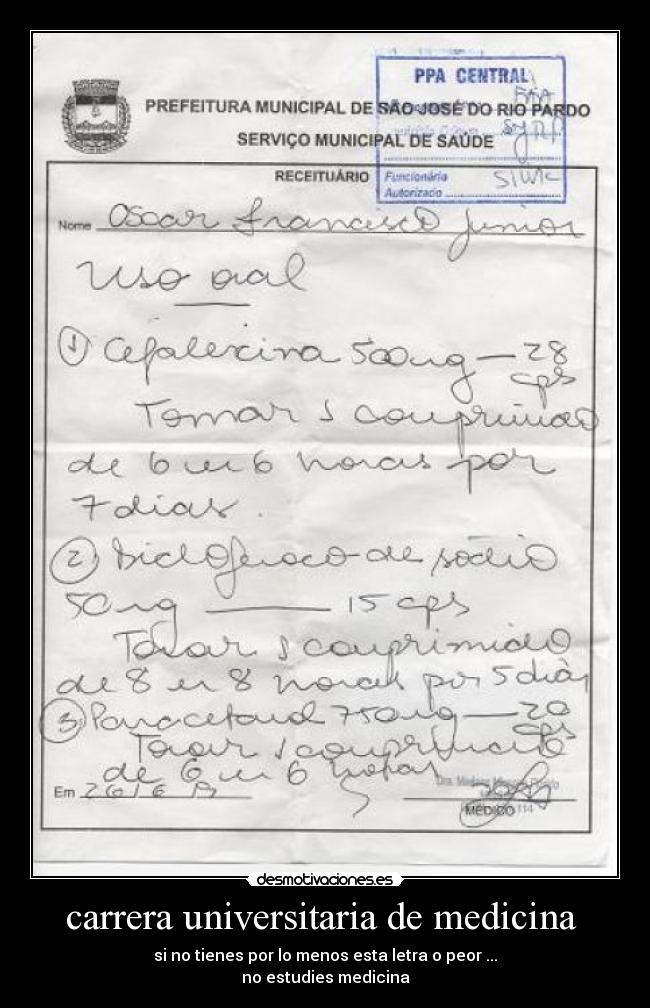 PPA CENTRAL
PREFEITURA MUNICIPAL DE SÃO JOSÉ DO RIO PARDO
SERVIÇO MUNICIPAL DE SAÚDE
RECEITUÁRIO
Funcionário
Autorizado
Nome Oscar Francisco Junior
Uso oral
1 Cefalexina 500mg — 28
cps
Tomar 1 comprimido
de 6 em 6 horas por
7 dias.
2 Diclofenaco de sódio
50mg — 15 cps
Tomar 1 comprimido
de 8 em 8 horas por 5 dias
3 Paracetamol 750mg — 20
cps
Tomar 1 comprimido
de 6 em 6 horas
Em
MÉDICO 114
desmotivaciones.es
carrera universitaria de medicina
si no tienes por lo menos esta letra o peor ...
no estudies medicina